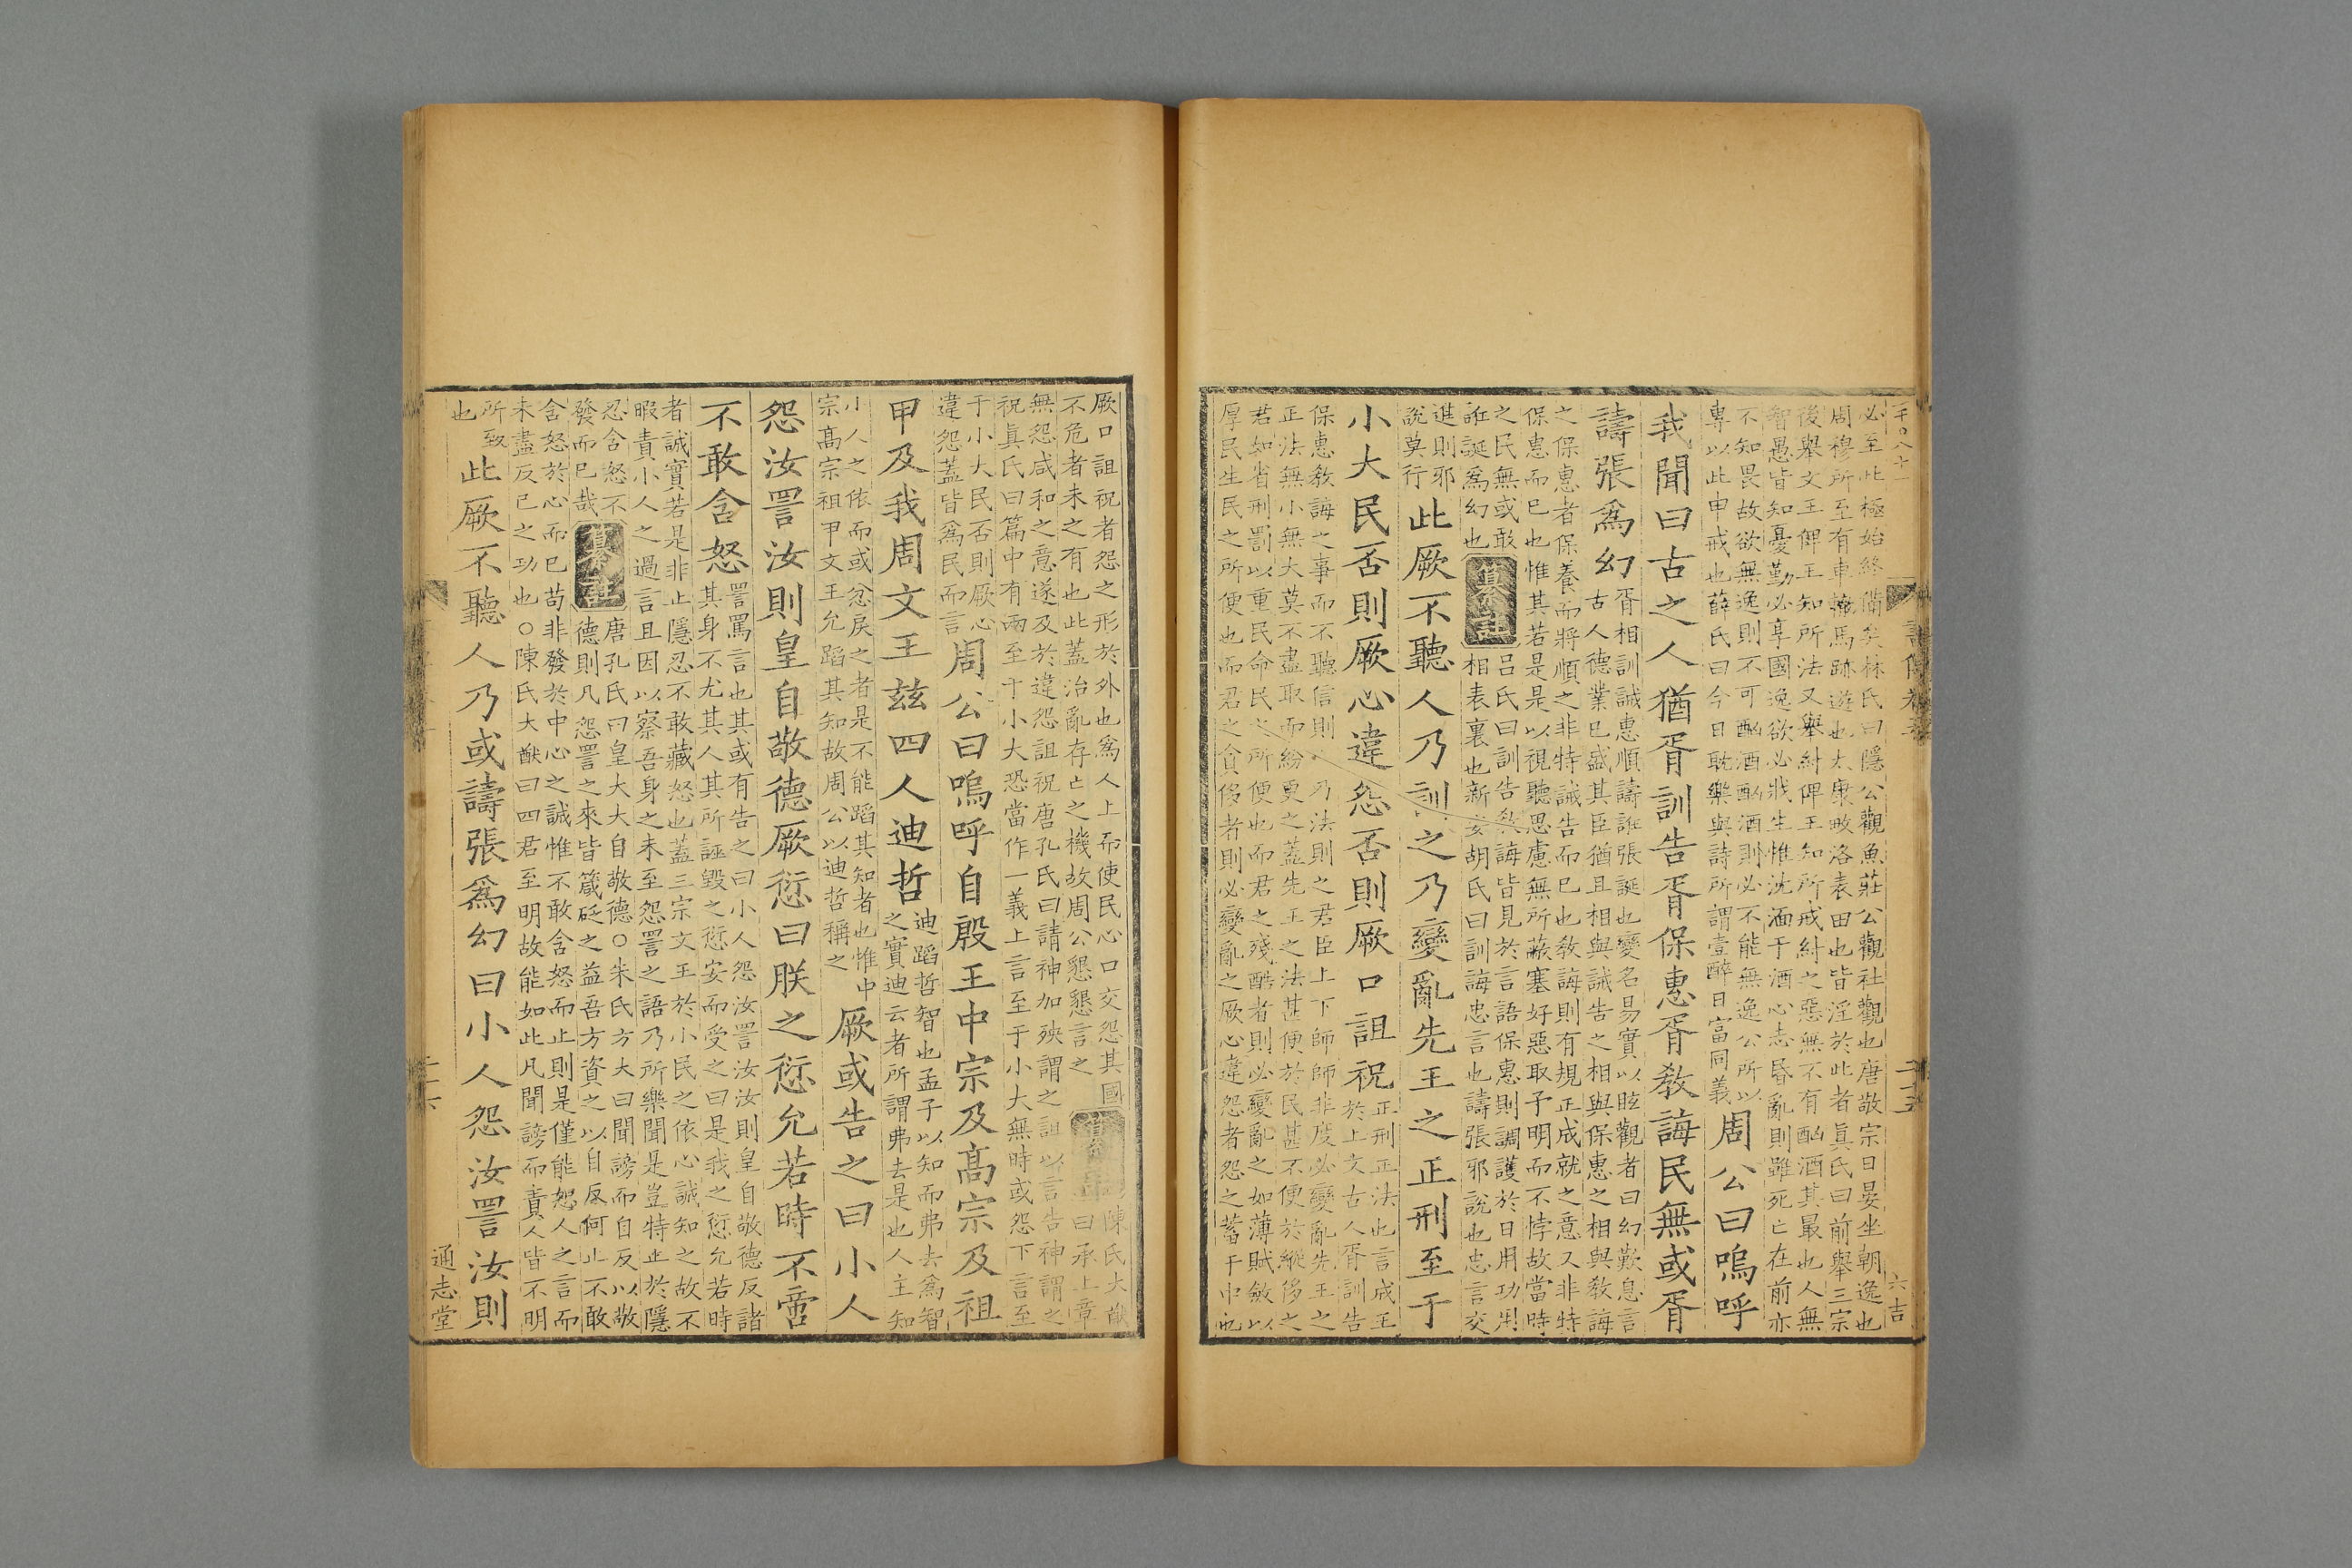 必至此極始終備矣林氏曰隱公觀魚莊公觀社觀也唐敬宗日晏坐朝逸也
周穆所至有車轍馬跡遊也太康畋洛表田也皆淫於此者眞氏曰前舉三宗
後舉文王俾王知所法又舉紂俾王知所戒紂之惡無不有酗酒其最也人無
智愚皆知憂勤必享國逸欲必戕生惟沈湎于酒心志昏亂則雖死亡在前亦
不知畏故欲無逸則不可酗酒酗酒則必不能無逸公所以
專以此申戒也薛氏曰今日耽樂與詩所謂壹醉日富同義
周公曰嗚呼
我聞曰古之人猶胥訓告胥保惠胥敎誨民無或胥
譸張爲幻
胥相訓誡惠順譸誑張誕也變名易實以眩觀者曰幻歎息言
古人德業已盛其臣猶且相與誡告之相與保惠之相與敎誨
之保惠者保養而將順之非特誡告而已也敎誨則有規正成就之意又非特
保惠而已也惟其若是是以視聽思慮無所蔽塞好惡取予明而不悖故當時
之民無或敢
誑誕爲幻也
纂註
呂氏曰訓告敎誨皆見於言語保惠則調護於日用功用
相表裏也新安胡氏曰訓誨忠言也譸張邪說也忠言交
進則邪
說莫行
此厥不聽人乃訓之乃變亂先王之正刑至于
小大民否則厥心違怨否則厥口詛祝
正刑正法也言成王
於上文古人胥訓告
保惠敎誨之事而不聽信則
乃法則之君臣上下師師非度必變亂先王之
正法無小無大莫不盡取而紛更之蓋先王之法甚便於民甚不便於縱侈之
君如省刑罰以重民命民之所便也而君之殘酷者則必變亂之如薄賦斂以
厚民生民之所便也而君之貪侈者則必變亂之厥心違怨者怨之蓄于中也
六吉
厥口詛祝者怨之形於外也爲人上而使民心口交怨其國
不危者未之有也此蓋治亂存亡之機故周公懇懇言之
陳氏大猷
曰承上章
無怨咸和之意遂及於違怨詛祝唐孔氏曰請神加殃謂之詛以言告神謂之
祝眞氏曰篇中有兩至于小大恐當作一義上言至于小大無時或怨下言至
于小大民否則厥心
違怨蓋皆爲民而言
周公曰嗚呼自殷王中宗及高宗及祖
甲及我周文王兹四人迪哲
迪蹈哲智也孟子以知而弗去爲智
之實迪云者所謂弗去是也人主知
小人之依而或忿戾之者是不能蹈其知者也惟中
宗高宗祖甲文王允蹈其知故周公以迪哲稱之
厥或告之曰小人
怨汝詈汝則皇自敬德厥愆曰朕之愆允若時不啻
不敢含怒
詈罵言也其或有告之曰小人怨汝詈汝汝則皇自敬德反諸
其身不尤其人其所誣毀之愆安而受之曰是我之愆允若時
者誠實若是非止隱忍不敢藏怒也蓋三宗文王於小民之依心誠知之故不
暇責小人之過言且因以察吾身之未至怨詈之語乃所樂聞是豈特止於隱
忍含怒不
發而已哉
纂註
唐孔氏曰皇大大自敬德○朱氏方大曰聞謗而自反以敬
德則凡怨詈之來皆箴砭之益吾方資之以自反何止不敢
含怒於心而已苟非發於中心之誠惟不敢含怒而止則是僅能恕人之言而
未盡反已之功也○陳氏大猷曰四君至明故能如此凡聞謗而責人皆不明
所致
也
此厥不聽人乃或譸張爲幻曰小人怨汝詈汝則
通志堂